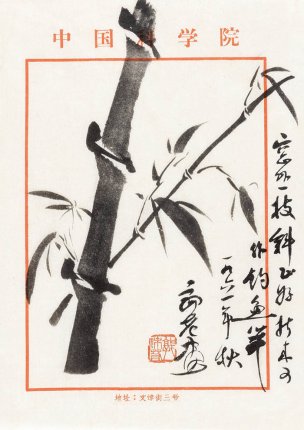 中国科学院
窗外一枝斜正好折来可
作钓鱼竿
一九六一年秋
地址：文津街三号